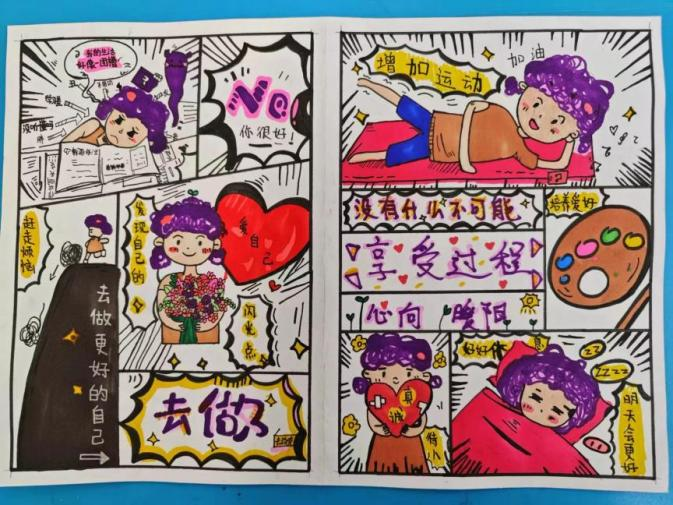 我的生活
好像一团糟
No
你很好!
赶走烦恼
发现自己的
爱自己
闪光点
去做更好的自己
去做
增加运动
加油
没有什么不可能
培养爱好
享受过程
心向暖阳
真诚
待人
好好休息
zz
zzzz
明天会更好